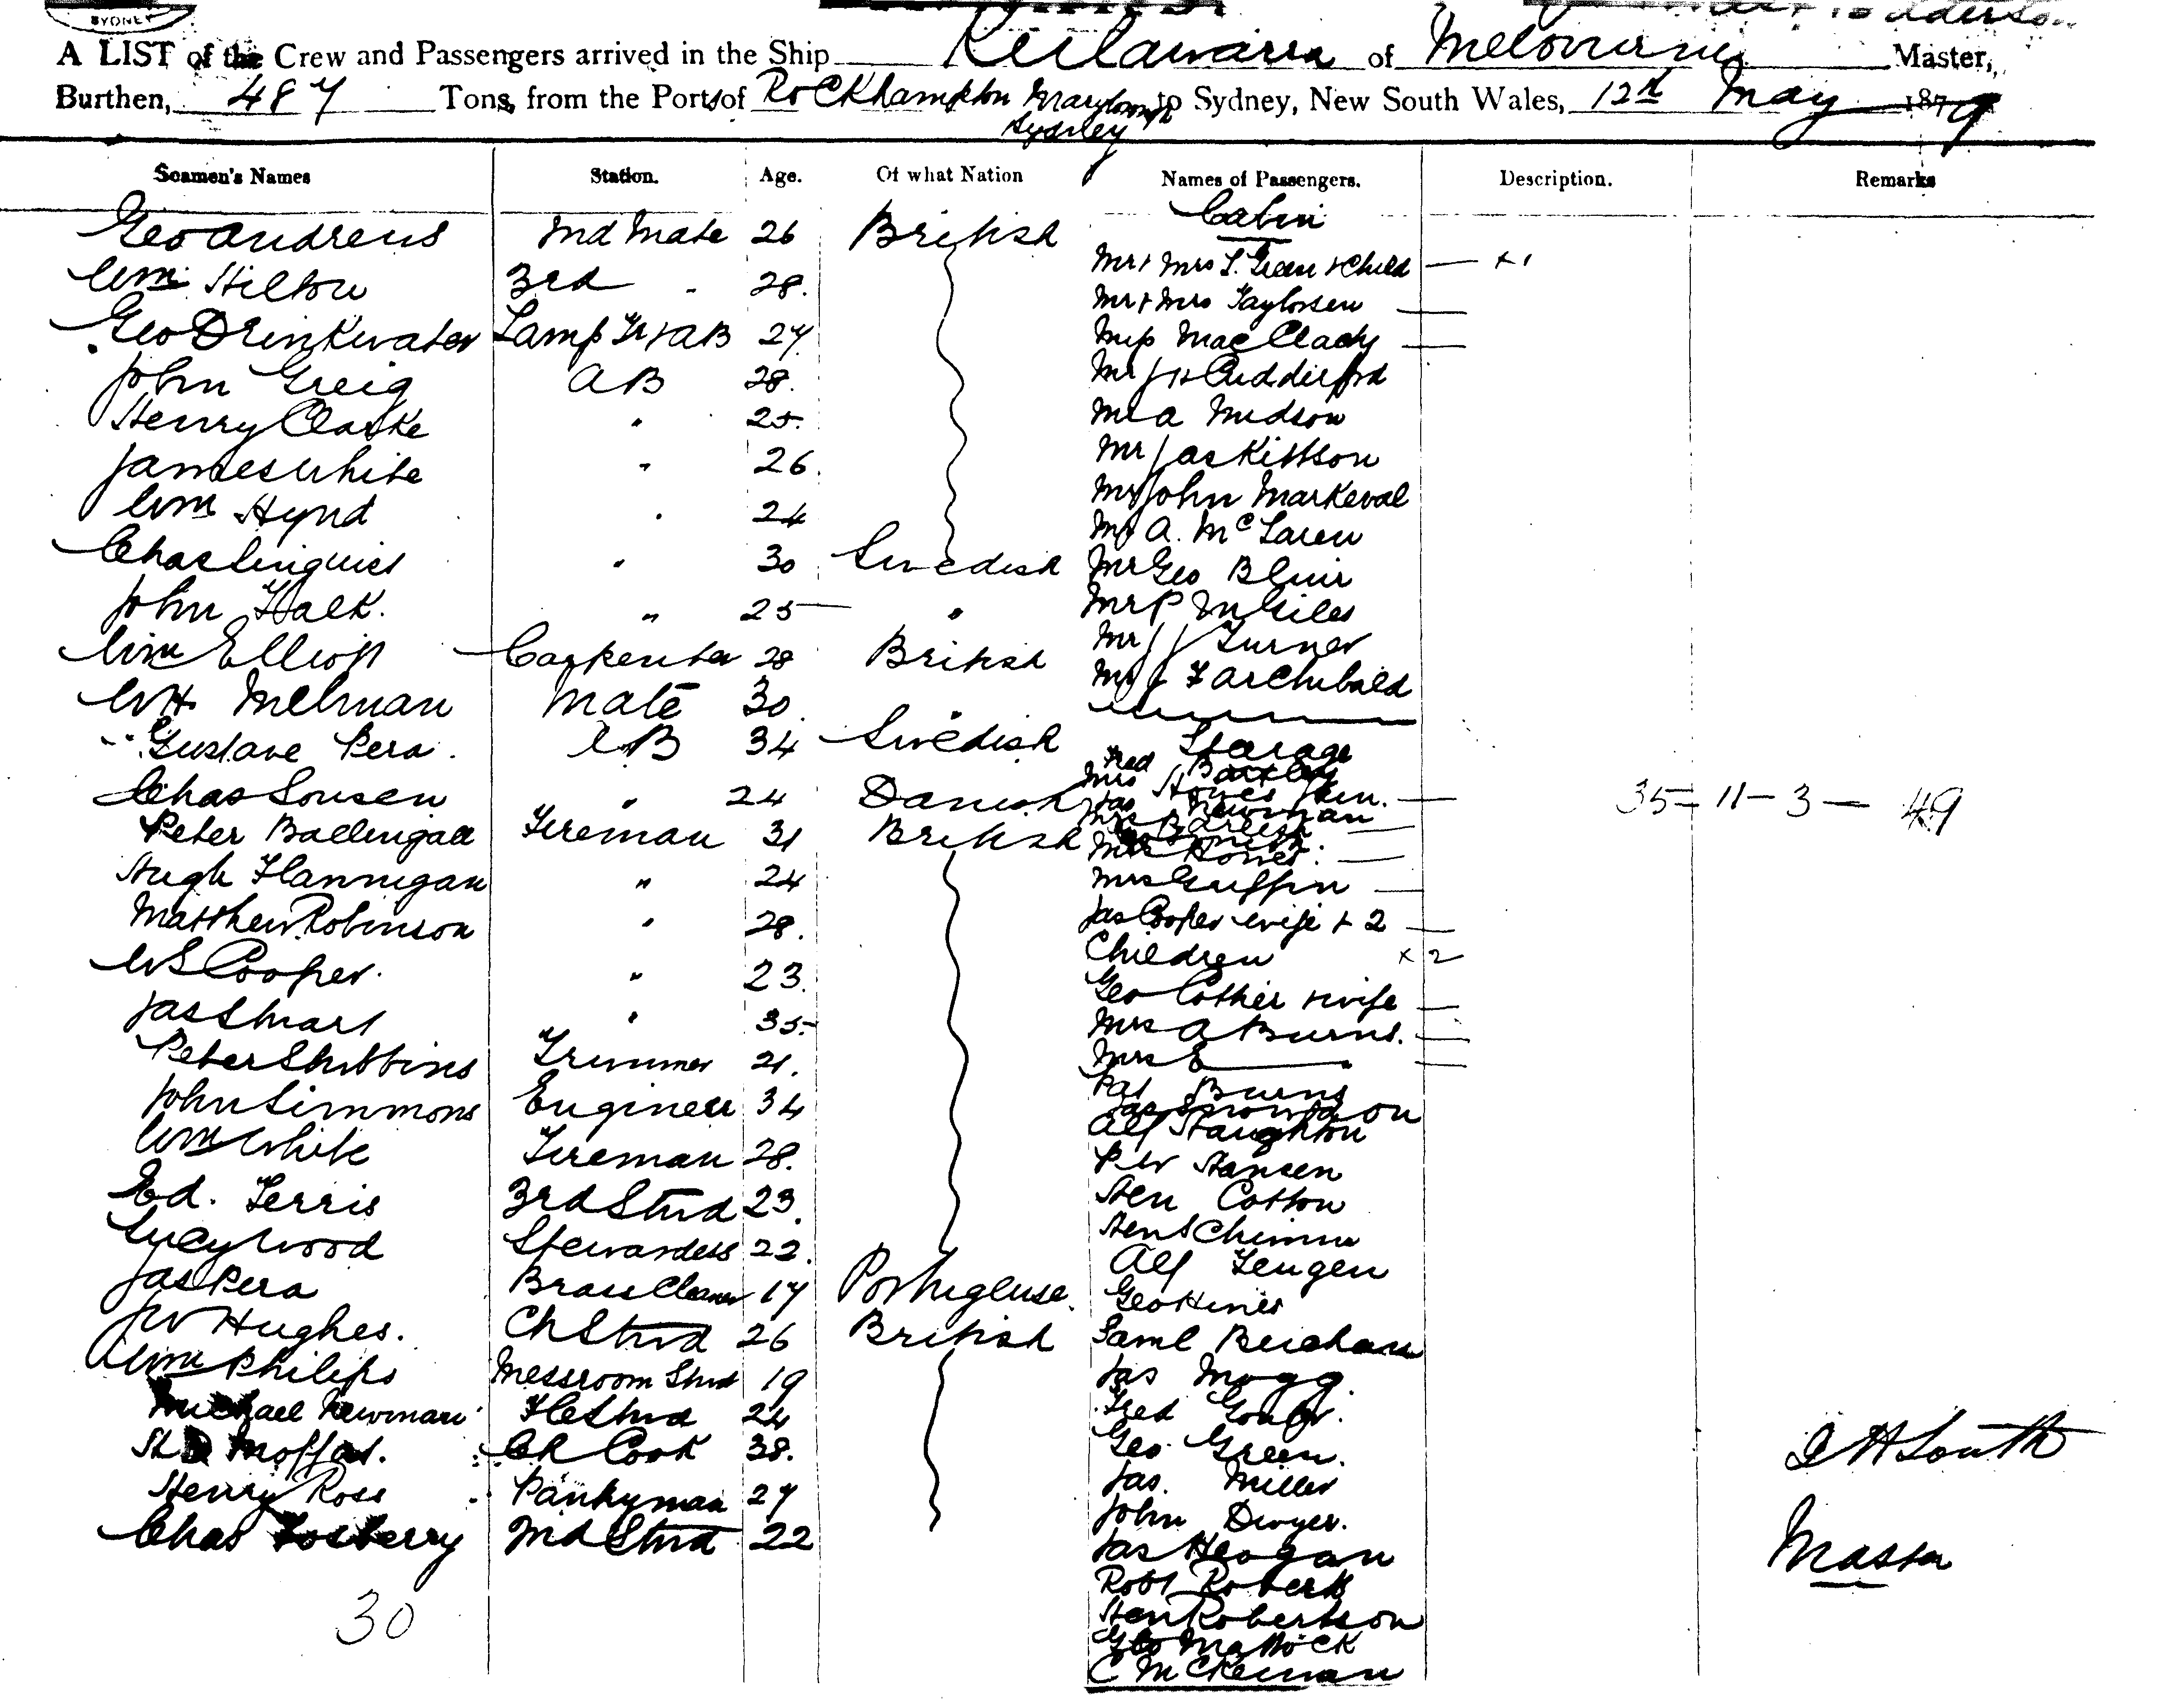 SYDNEY
A LIST of the Crew and Passengers arrived in the Ship Keilawarra of Melbourne Master,
Burthen, 487 Tons, from the Ports of Rockhampton Maryborough to Sydney, New South Wales, 12th May 1879
Sydney
Seamen's Names Station. Age. Of what Nation Names of Passengers. Description. Remarks
Cabin
Geo Andrews 2nd Mate 26 British
Mr & Mrs T. Green & Child — x1
Wm Hilton 3rd " 28.
Mr & Mrs Taylorsen —
Geo Drinkwater Lamp Tr & AB 27
Miss Mac Clady —
John Greig AB 28.
Mr J H Cuddiford
Henry Clarke " 25.
Mr A Hudson
James White " 26.
Mr Jas Kittson
Mr John Markeval
Wm Hynd " 24
Mr A. McLaren
Chas Linquist " 30 Swedish
Mr Geo Blair
John Falk. " 25 "
Mr P McGiles
Mr J J Turner
Wm Elliott Carpenter 28 British
Mr J F Archibald
W H Melman Mate 30 "
Gustave Pera. AB 34 Swedish
Steerage
Fred Bartley
Mrs Howes Sen. —
Chas Sonsen " 24 Danish
Jas Newman
35 = 11 - 3 — 49
Peter Ballingall Fireman 31 British
Mrs Howes. —
Hugh Flannigan " 24
Mrs Griffin —
Matthew Robinson " 28.
Jas Cooper wife & 2 —
Children x 2
W S Cooper. " 23.
Geo Cother & wife —
Jas Stuart " 35.
Mrs A Burns. —
Peter Stubbins Trimmer 21.
Mrs E — " —
Pat Burns
John Simmons Engineer 34
Jas Snowdon
Alf Staughton
Wm White Fireman 28.
P W Hansen
Ed. Ferris 3rd Stwd 23.
Hen Cotton
Lucy Wood Stewardess 22.
Alf Zeugen
Jas Pera Brass Cleaner 17 Portugluse.
Geo Hines
J W Hughes. Ch Stwd 26 British
Saml
Wm Philips Messroom Stwd 19
Jas Mogg.
Michael Newman F C Stwd 24
Fred
Geo Green.
Moffat. Ch Cook 38.
I H South
Jas. Miller
Henry Ross Pantryman 27
John Dwyer.
Chas Fosberry 2nd Stwd 22
Master
Jas Heogan
Robt Roberts
30
Hen Robertson
Geo Mattock
C McKeinan